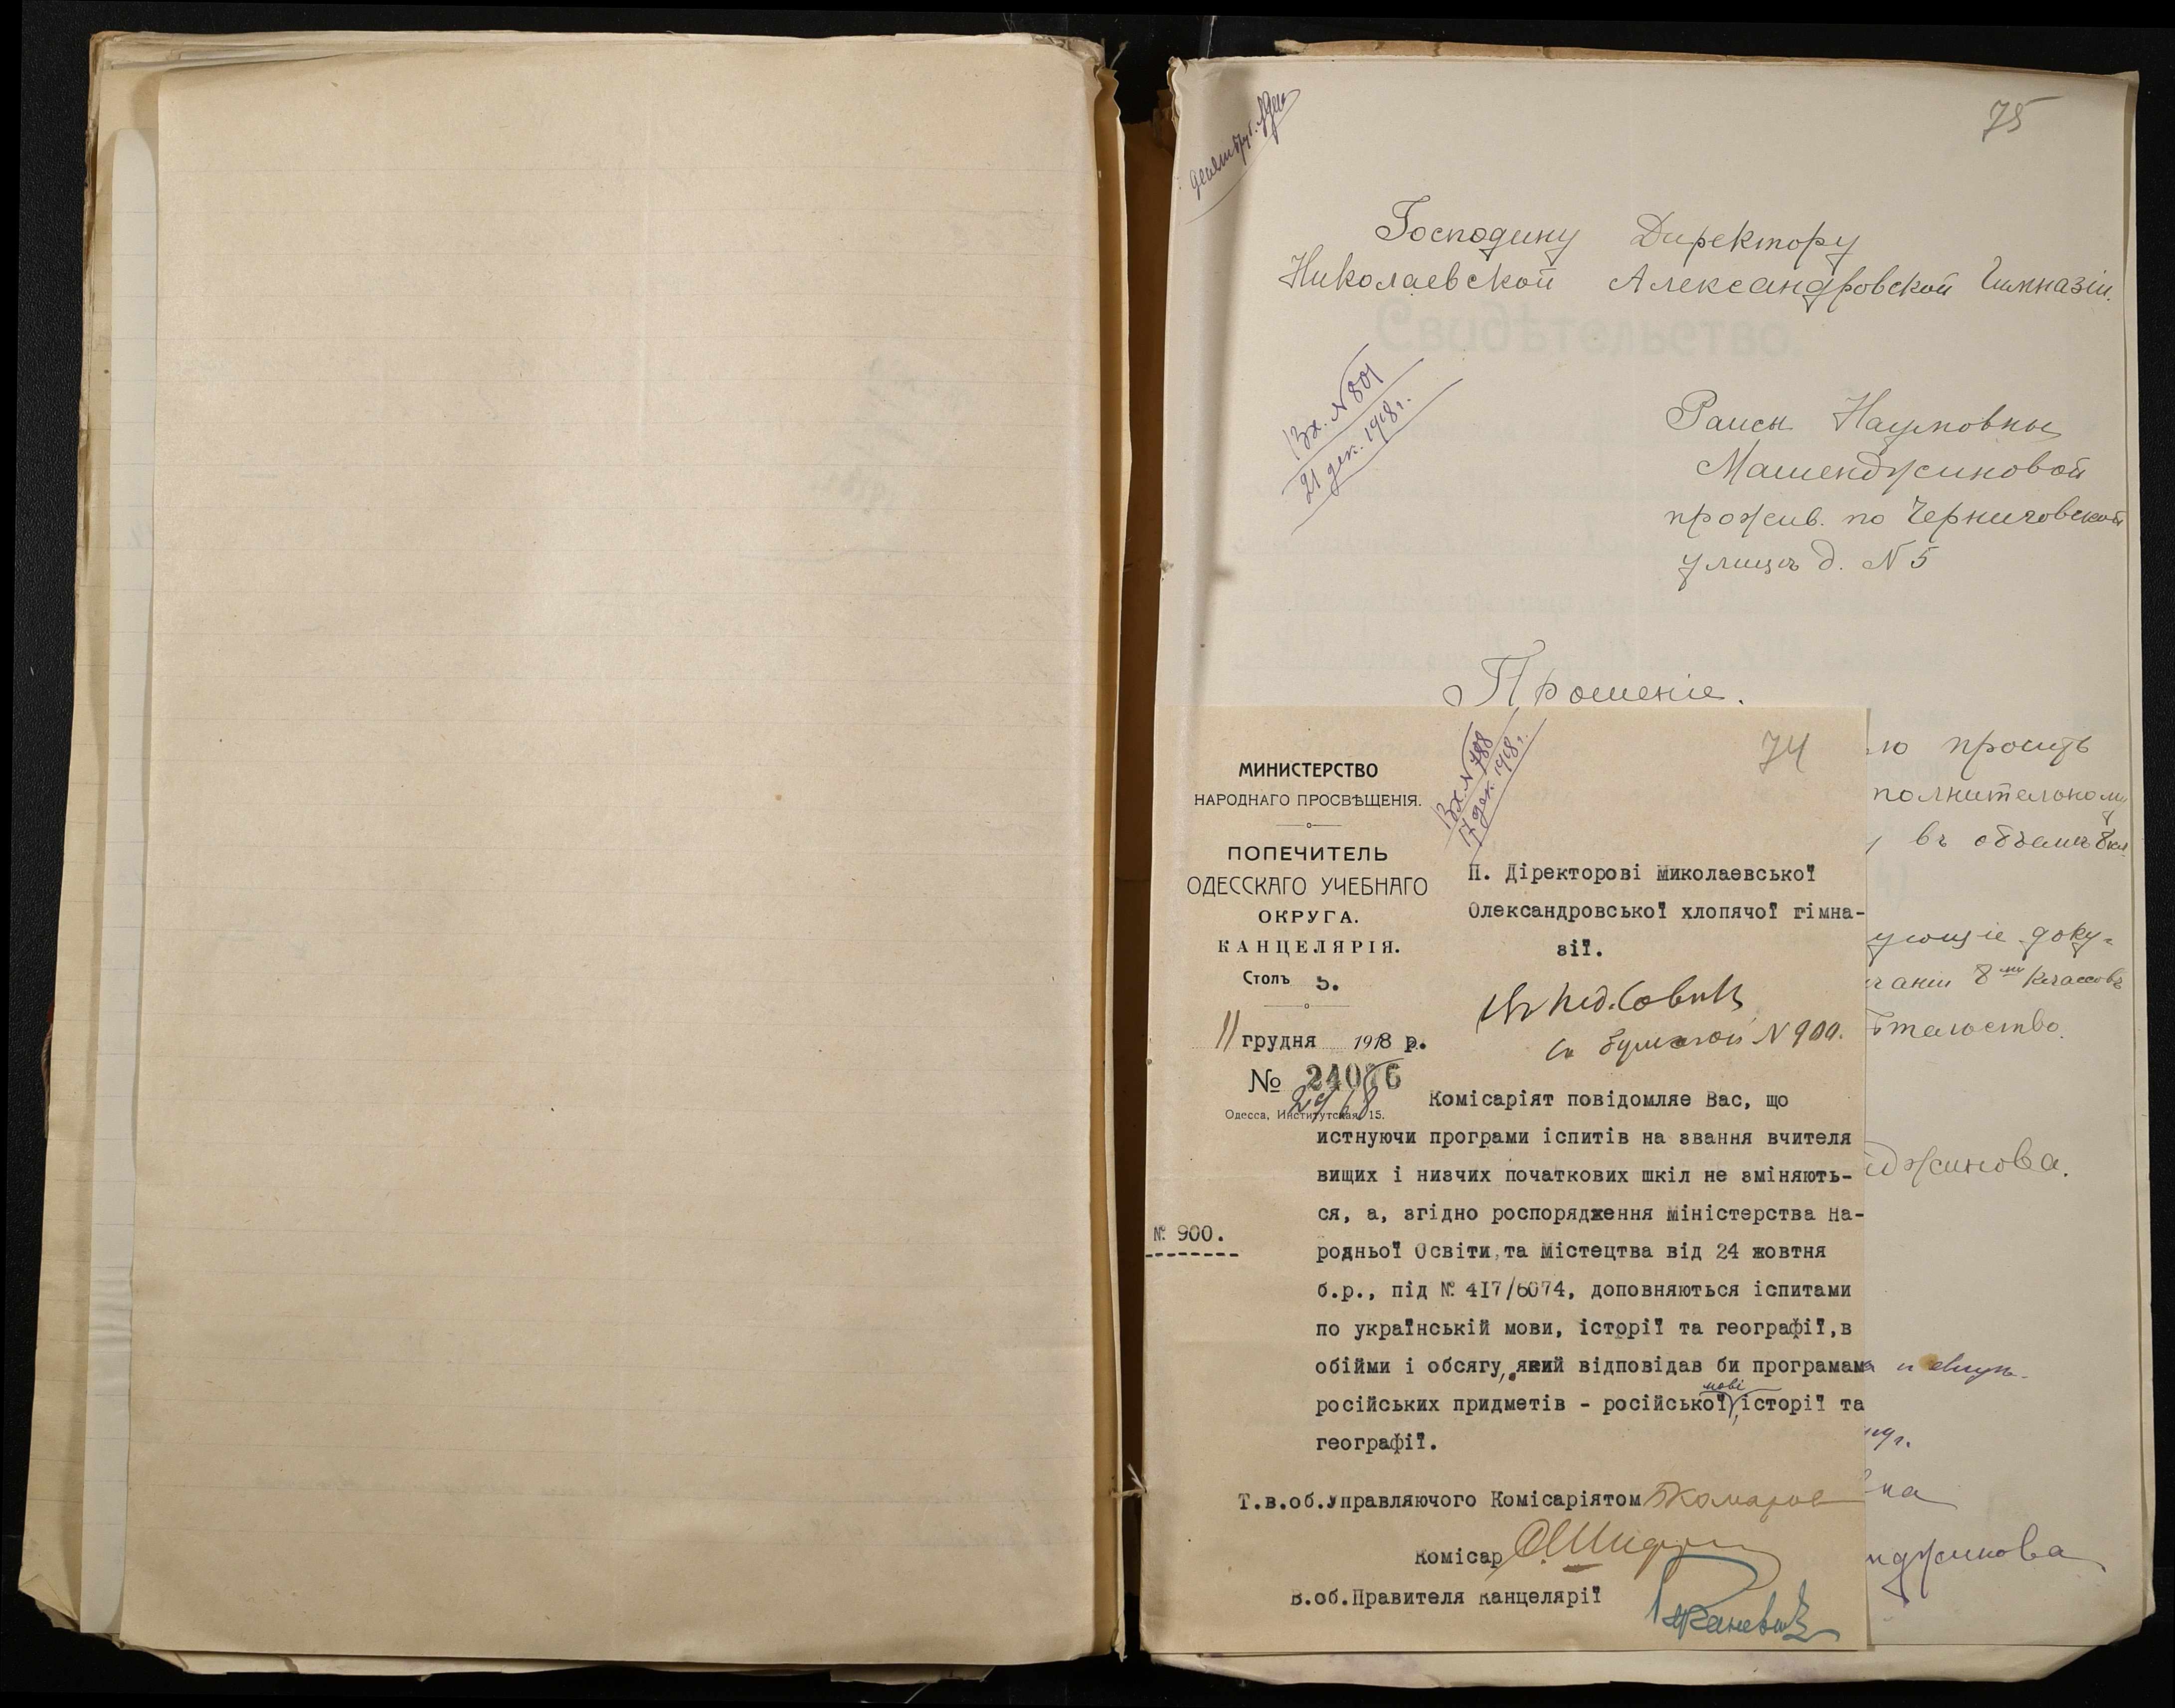 75
Господину Директору
Николаевской Александровской Гимназіи.
Вх. N 801
21 дек. 1918 г.
Раисы Наумовны
Машенджиновой
прожив. по Черниговской
улицѣ д. N 5
Прошеніе.
просить
въ объемѣ 8 кл.
ующіе доку-
8ми классовъ
джинова.
74
Вх. N 788
17 дек. 1918 г.
МИНИСТЕРСТВО
НАРОДНАГО ПРОСВѢЩЕНІЯ.
ПОПЕЧИТЕЛЬ
ОДЕССКАГО УЧЕБНАГО
ОКРУГА.
КАНЦЕЛЯРІЯ.
Столъ 5.
11 грудня 1918 р.
№ 24076
Одесса, Институтская, 15.
№ 900.
П. Діректорові Миколаевської
Олександровської хлопячої гімна-
зії.
Въ пед. Совѣтъ
съ бумагой N 900.
Комісаріят повідомляе Вас, що
истнуючи програми іспитів на звання вчителя
вищих і низчих початкових шкіл не зміняють-
ся, а, згідно роспорядження Міністерства На-
родньої Освіти, та Містецтва від 24 жовтня
б.р., під № 417/6074, доповняються іспитами
по українській мови, історії та географії, в
обійми і обсягу, який відповідав би програмам
російських придметів - російської мові, історії та
географії.
Т.в.об.Управляючого Комісаріятом
Комісар
В.об.Правителя Канцелярії
нджинова